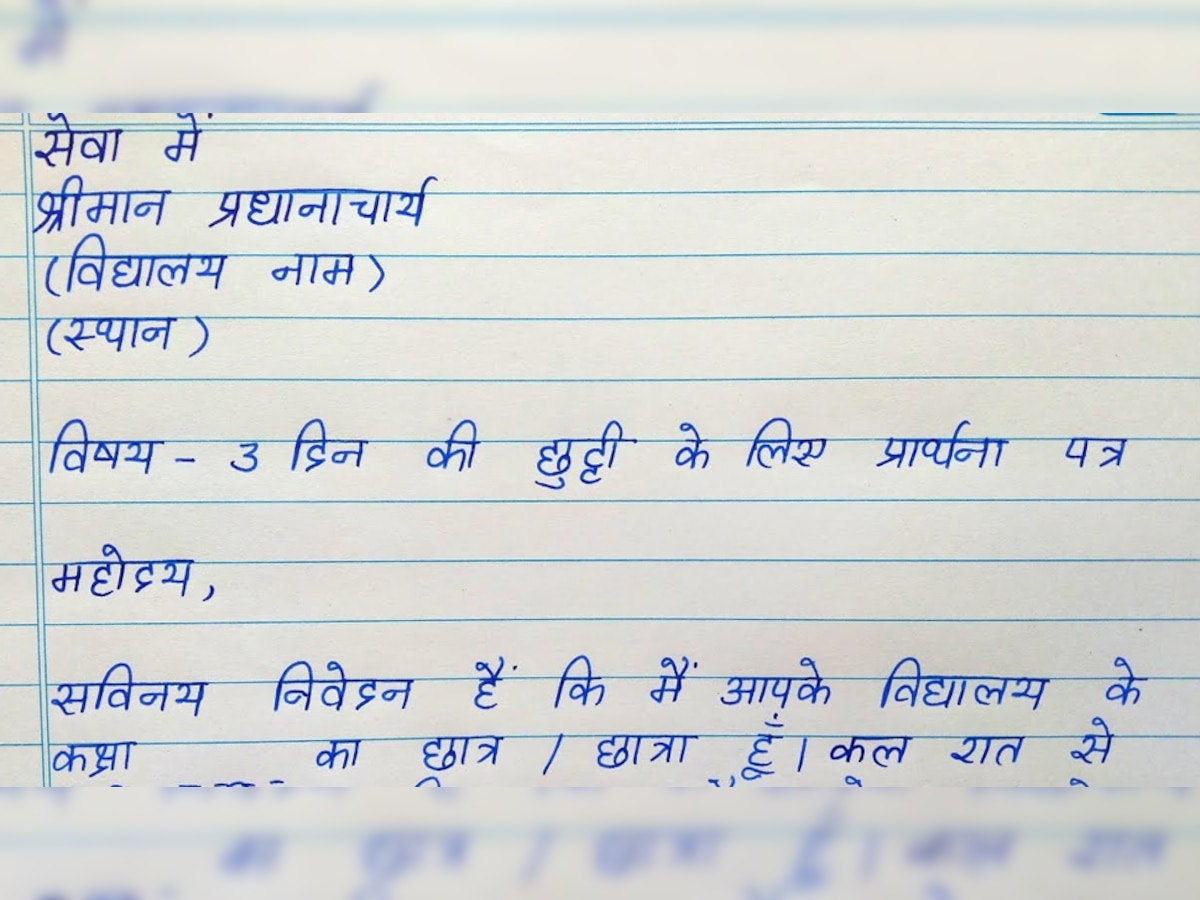 सेवा में
श्रीमान प्रधानाचार्य
(विद्यालय नाम)
(स्थान)
विषय - 3 दिन की छुट्टी के लिए प्रार्थना पत्र
महोदय,
सविनय निवेदन हैं कि मैं आपके विद्यालय के
कक्षा का छात्र / छात्रा हूँ। कल रात से